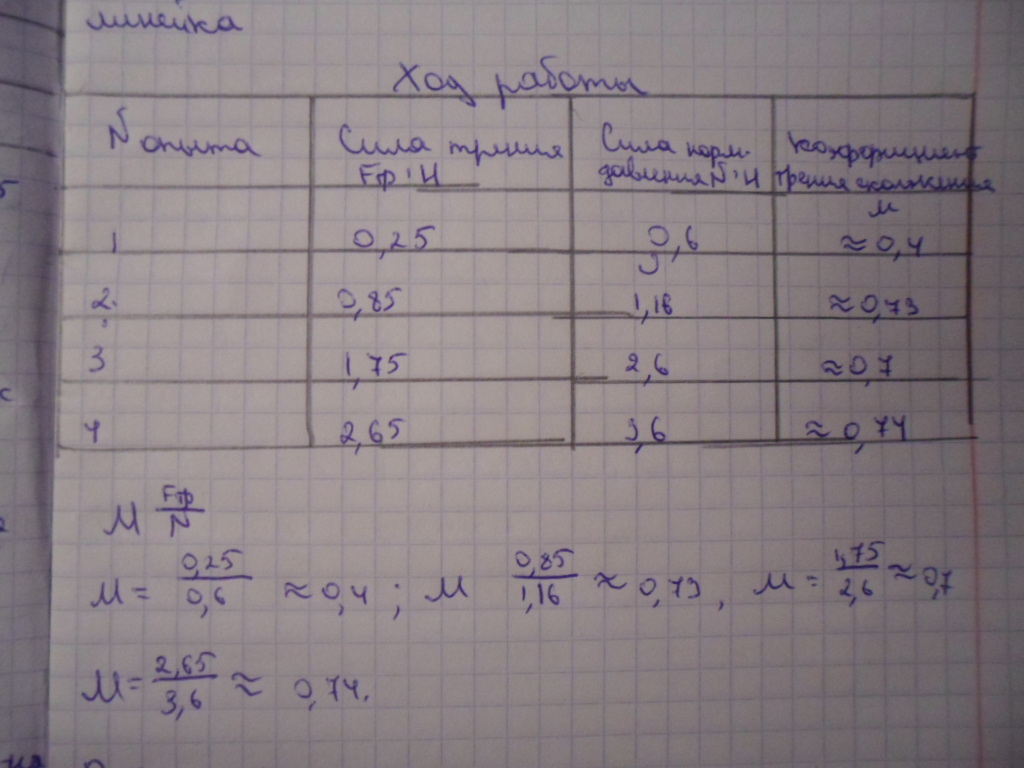 линейка
Ход работы
N опыта | Сила трения Fтр; Н | Сила норм. давления N; Н | Коэффициент трения скольжения м
1 | 0,25 | 0,6 | ≈0,4
2. | 0,85 | 1,16 | ≈0,73
3 | 1,75 | 2,6 | ≈0,7
4 | 2,65 | 3,6 | ≈0,74
М Fтр/N
М = 0,25/0,6 ≈0,4 ; М 0,85/1,16 ≈ 0,73, м = 1,75/2,6 ≈0,7
М = 2,65/3,6 ≈ 0,74.